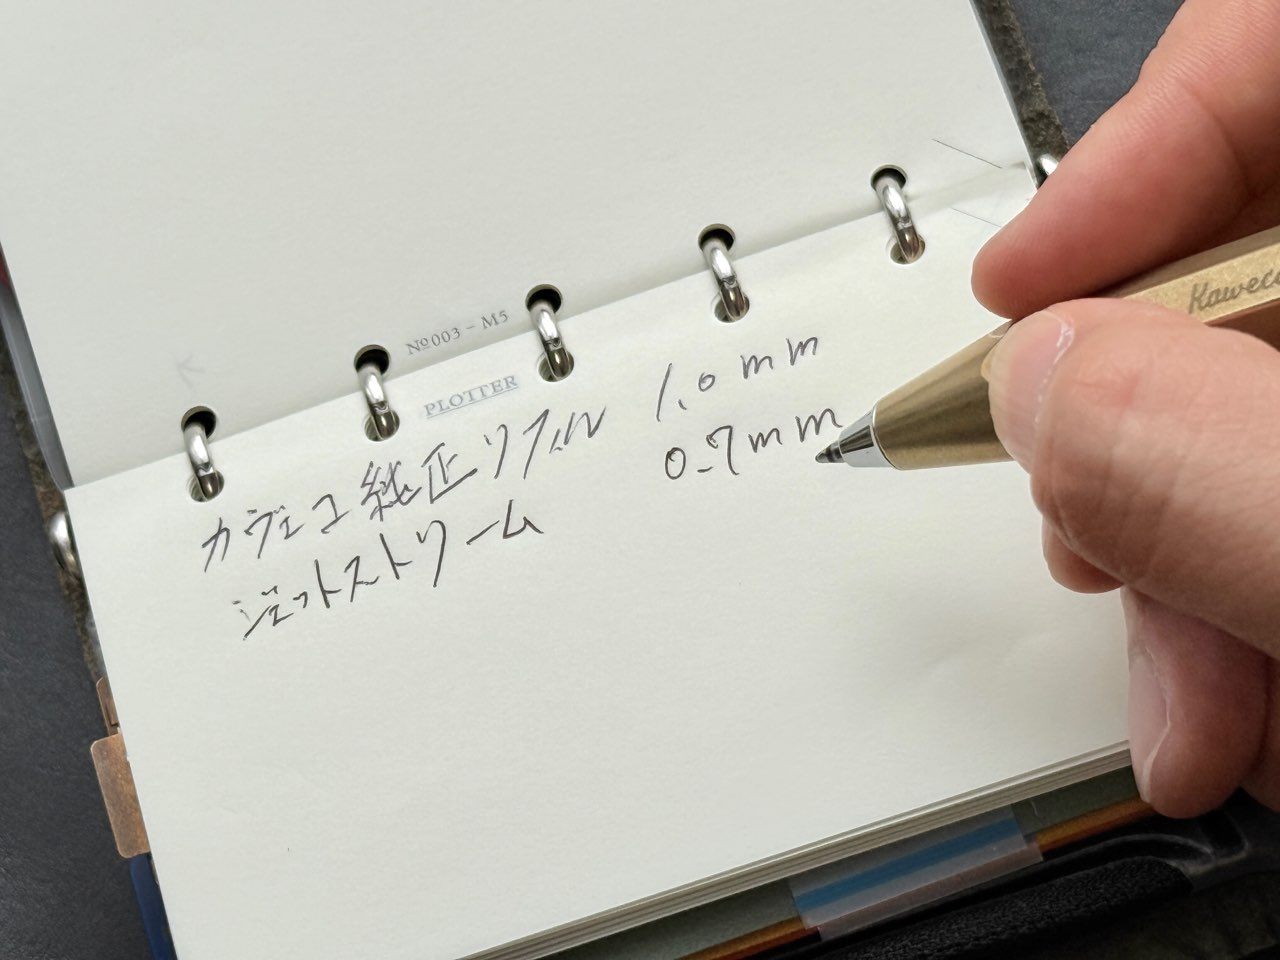 №003 - M5
PLOTTER
カヴェコ純正リフィル 1.0mm
ジェットストリーム 0.7mm
Kaweco